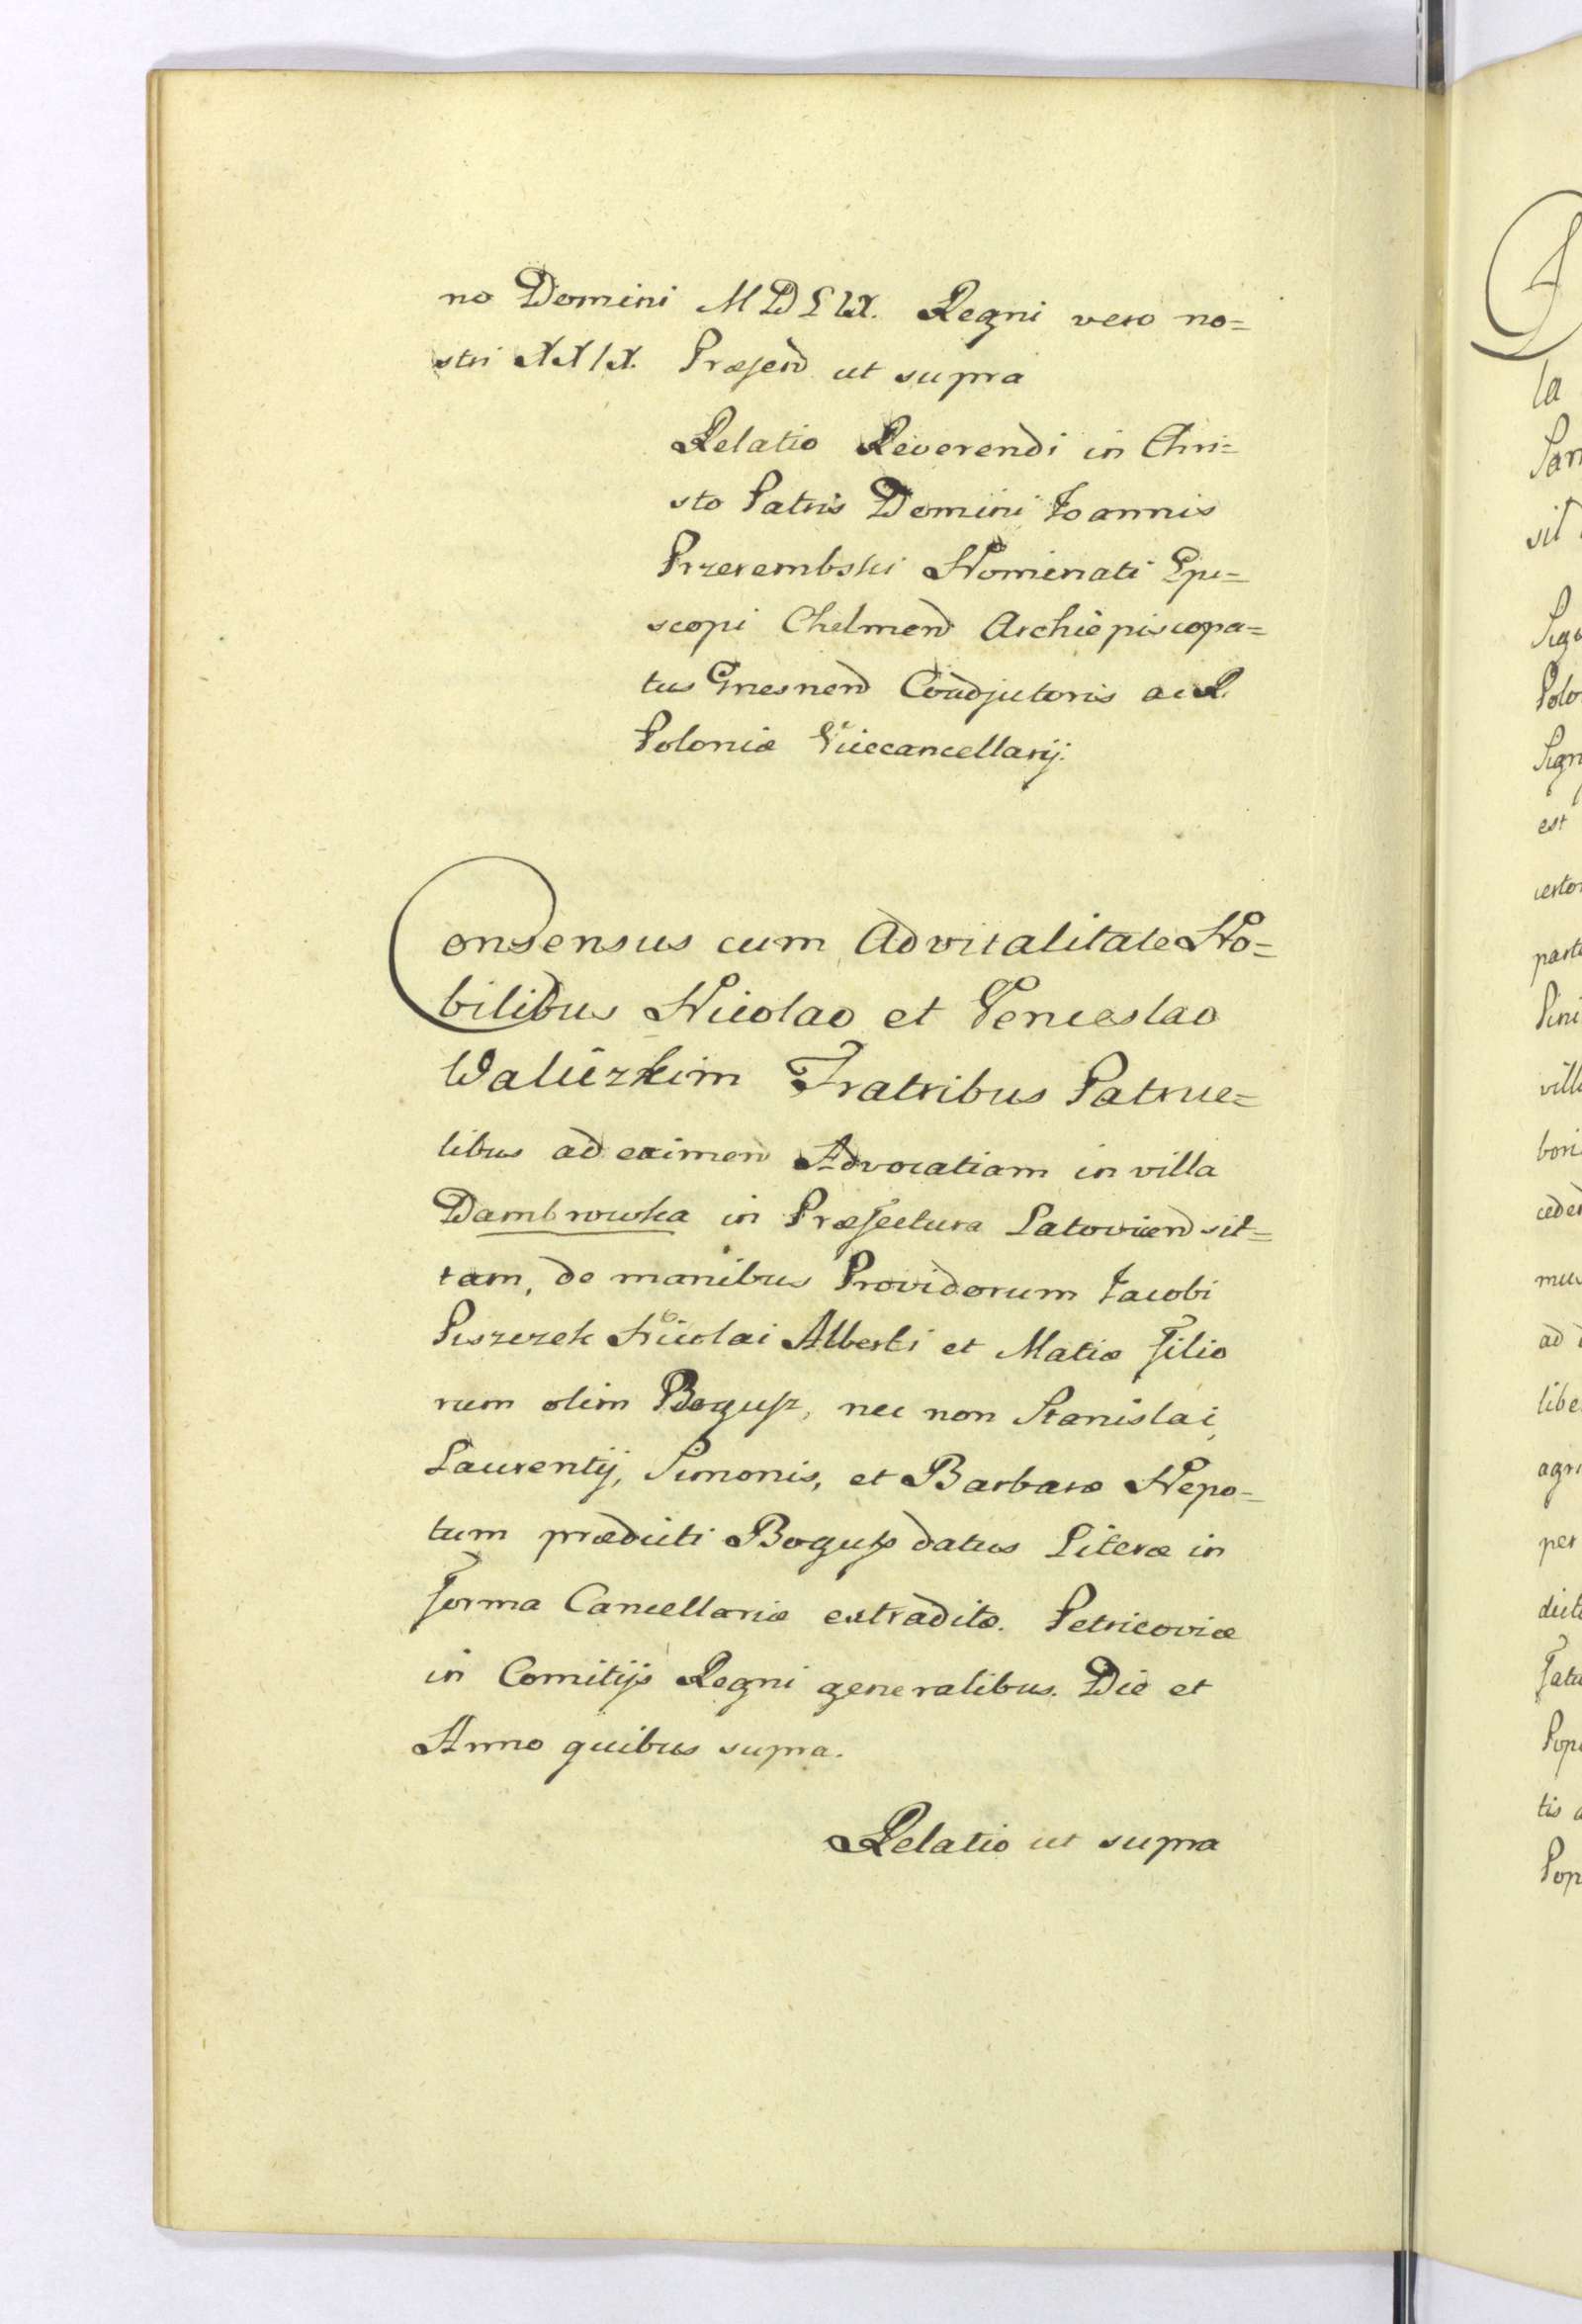 no Domini MDLIX. Regni vero no=
stri XXIX. Præsend ut supra
Relatio Reverendi in Chri=
sto Patris Domini Joannis
Przerembski Nominati Epi=
scopi Chelmend Archiepiscopa=
tus Gnesnend Coadjutoris ac R.
Poloniæ Vicecancellarij.
Consensus cum Advitalitate No=
bilibus Nicolao et Venceslao
Fratribus Patrue=
libus ad eximend Advocatiam in villa
Dambrowka in Præfectura Latoviend sit=
tam, de manibus Providorum Jacobi
Nicolai Alberti et Matiæ Filio
rum olim Bogusz, nec non Stanislai,
Laurentij, Simonis, et Barbaræ Nepo=
tum prædicti Bogusz datus Literæ in
Forma Cancellariæ extraditæ. Petricoviæ
in Comitijs Regni generalibus. Die et
Anno quibus supra.
Relatio ut supra
la
sit
Polo
est
villa
ad
per
tis